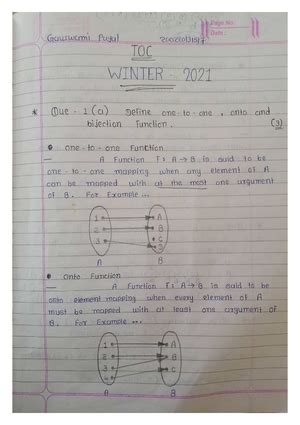 Page No.
Date:
Gauswami Payal
TOC
WINTER - 2021
* Que - 1 (a) Define one-to-one, onto and
bijection Function. (3)
one-to-one Function
A Function F: A → B is said to be
one-to-one mapping when any element of A
can be mapped with at the most one argument
of B. For Example ...
1 A
2 B
3 C
A B
Onto Function
A Function F: A → B is said to be
onto element mapping when every element of A
must be mapped with at least one argument of
B. For Example ...
1 A
2 B
3 C
4
A B